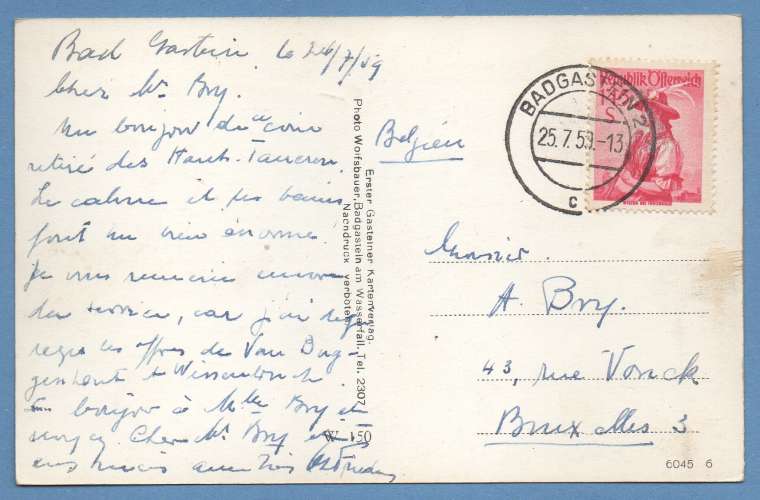 Bad Gastein, le 24/7/59
Cher Mr Bry.
Un bonjour du coin
retiré des Hauts-Tauern.
Le calme et les bains
font un bien énorme.
Je vous remercie encore
du service, car j'ai reçu
les offres de Van
bonjour à Mlle Bry et
Cher Mr Bry
Belgien
Erster Gasteiner Kartenverlag.
Photo Wolfsbauer, Badgastein am Wasserfall, Tel. 2307
Nachdruck verboten
W 150
BADGASTEIN 2
25.7.59.-13
c
Republik Österreich
Monsieur
A. Bry.
43, rue Vonck
Bruxelles 3
6045 6